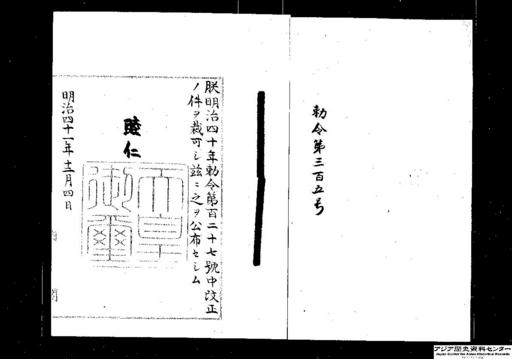 勅令第三百五号
朕明治四十年勅令第百二十七號中改正
ノ件ヲ裁可シ茲ニ之ヲ公布セシム
睦仁
天皇御璽
明治四十一年十二月四日
アジア歴史資料センター
Japan Center for Asian Historical Records